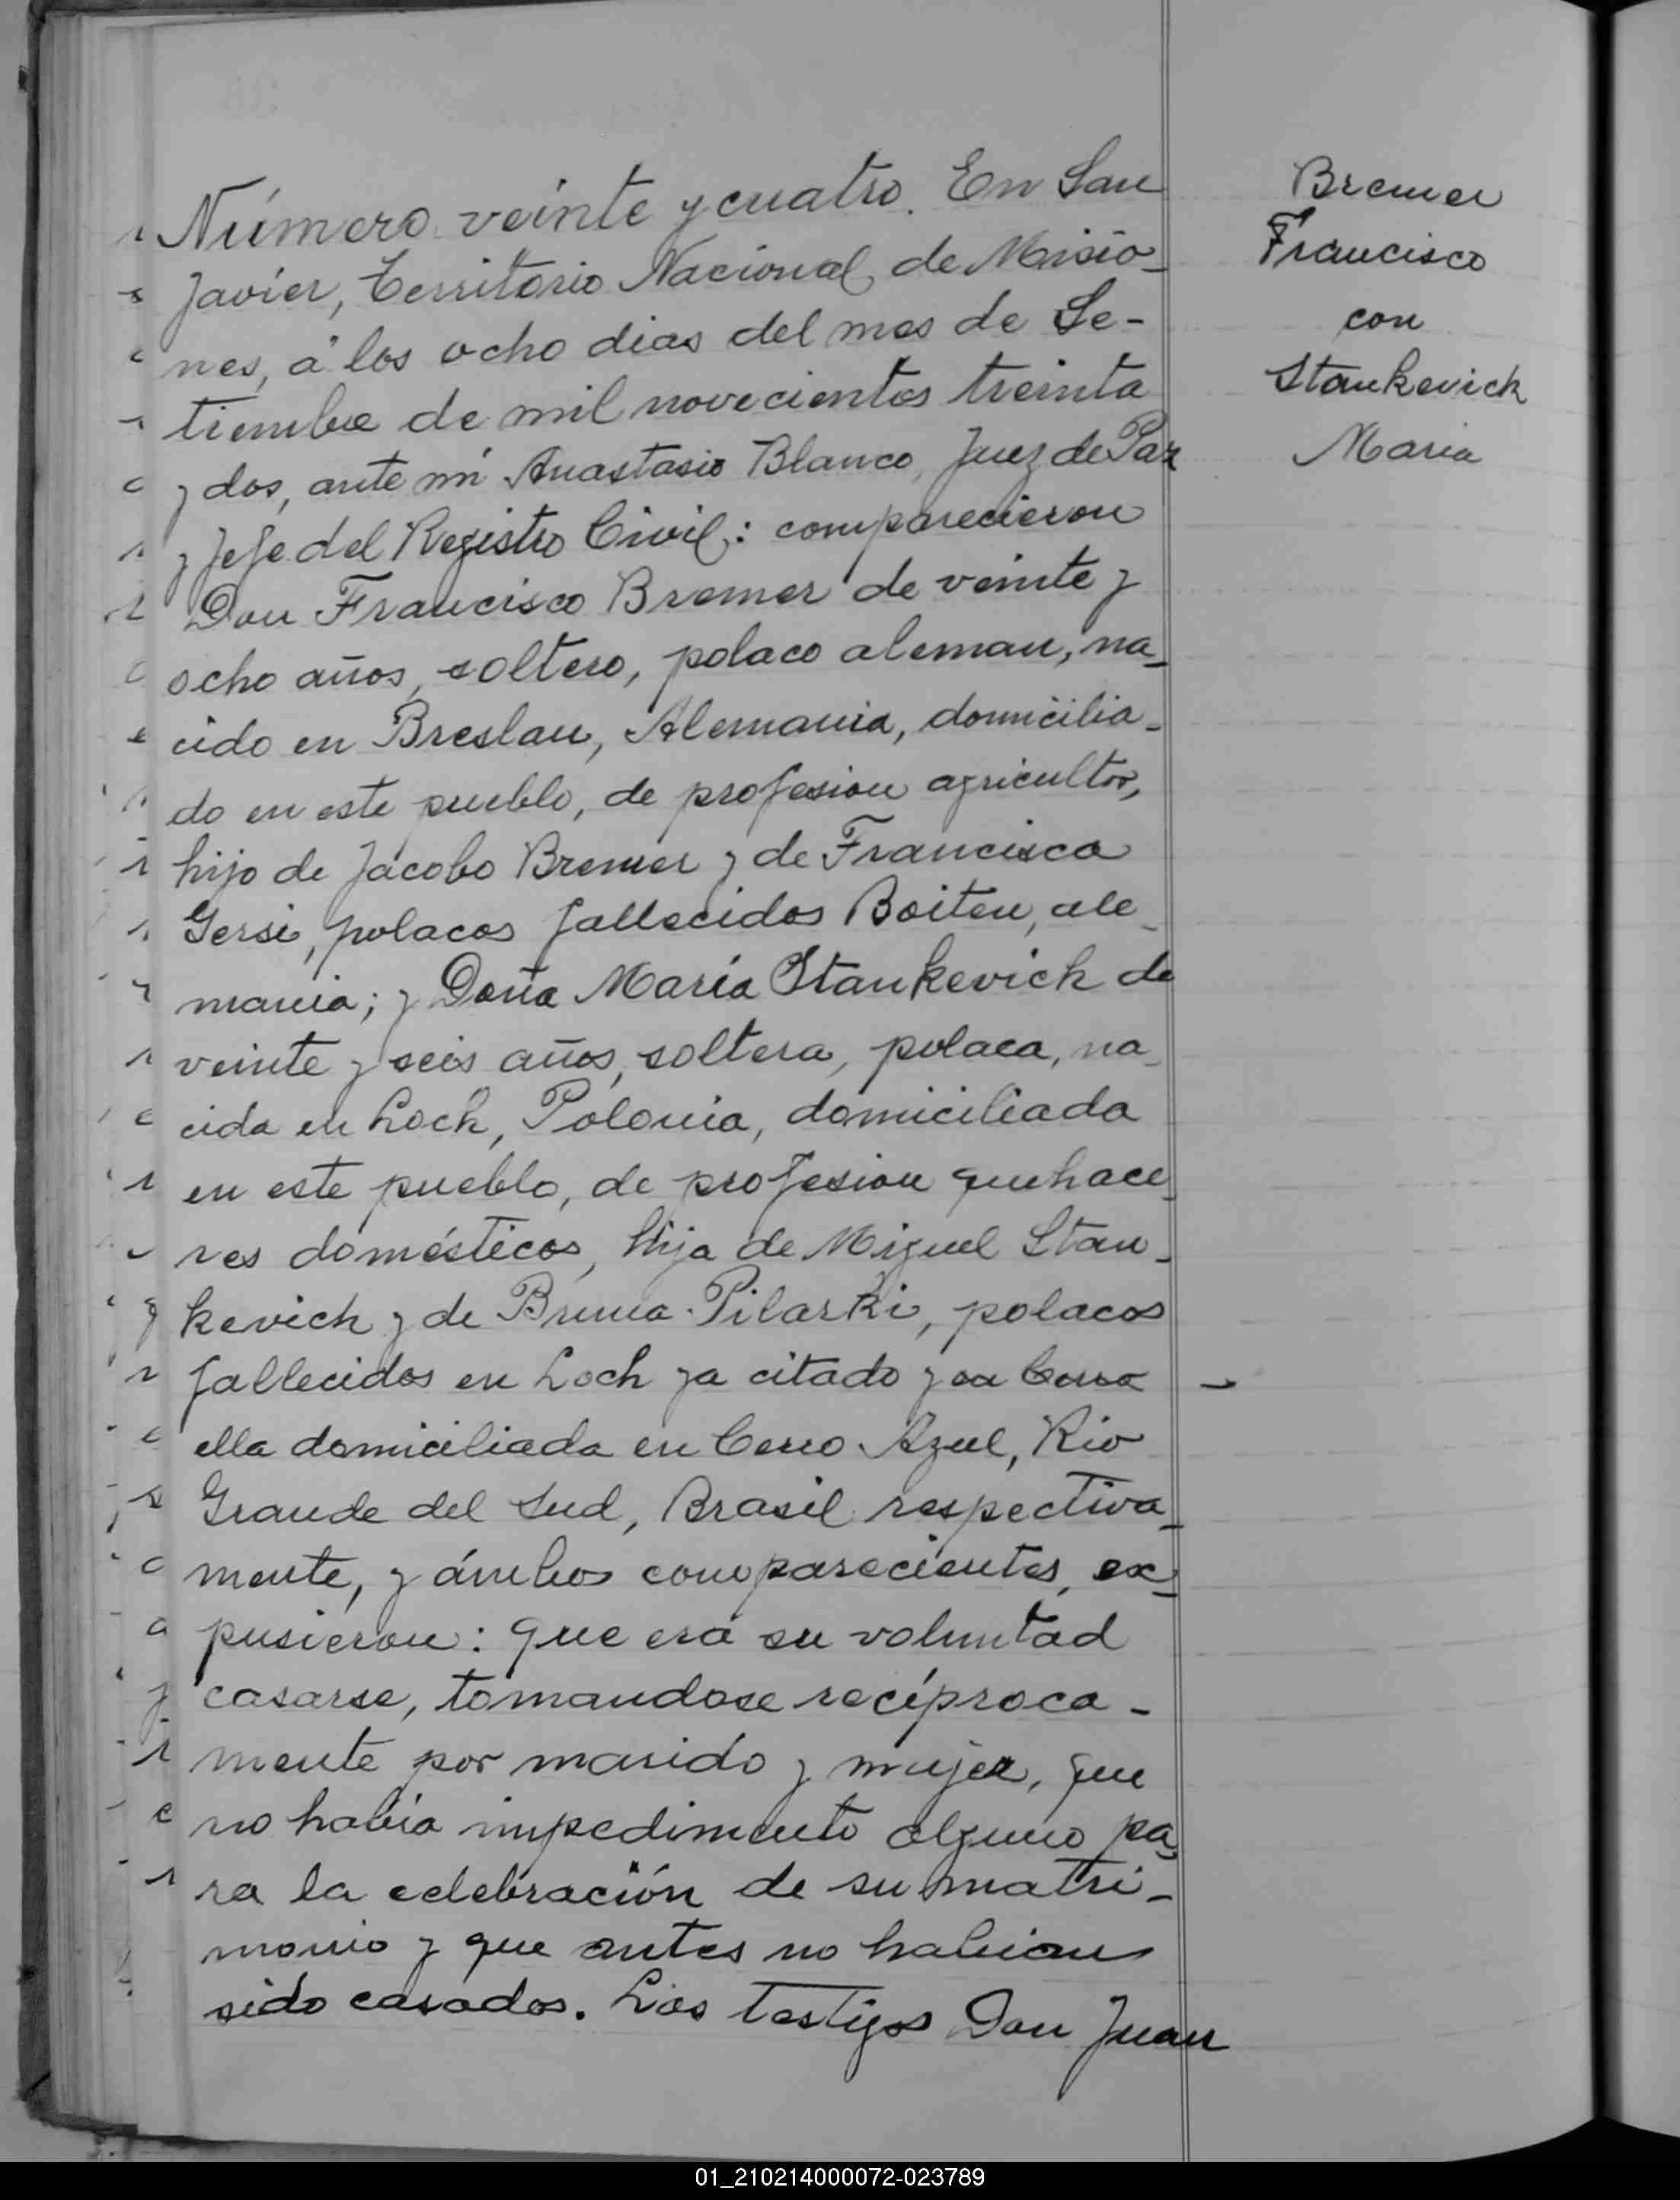 Número veinte y cuatro. En San
Javier, Territorio Nacional de Misio-
nes, á los ocho dias del mes de Se-
tiembre de mil novecientos treinta
y dos, ante mí Anastasio Blanco, Juez de Paz
y Jefe del Registro Civil: comparecieron
Don Francisco Bremer de veinte y
ocho años, soltero, polaco aleman, na-
cido en Breslau, Alemania, domicilia-
do en este pueblo, de profesion agricultor,
hijo de Jacobo Bremer y de Francisca
Gersi, polacos fallecidos Boiten, ale-
mania; y Doña María Stankevich de
veinte y seis años, soltera, polaca, na-
cida en Loch, Polonia, domiciliada
en este pueblo, de profesion quehace-
res domésticos, hija de Miguel Stan-
kevich y de Bruna Pilarki, polacos
fallecidos en Loch ya citado y
ella domiciliada en Cerro Azul, Rio
Grande del Sud, Brasil respectiva-
mente, y ámbos comparecientes, ex-
pusieron: que era su voluntad
casarse, tomandose recíproca-
mente por marido y mujer, que
no había impedimento alguno pa-
ra la celebración de su matri-
monio y que antes no habian
sido casados. Los testigos Don Juan
Bremer
Francisco
con
Stankevich
Maria
01_210214000072-023789